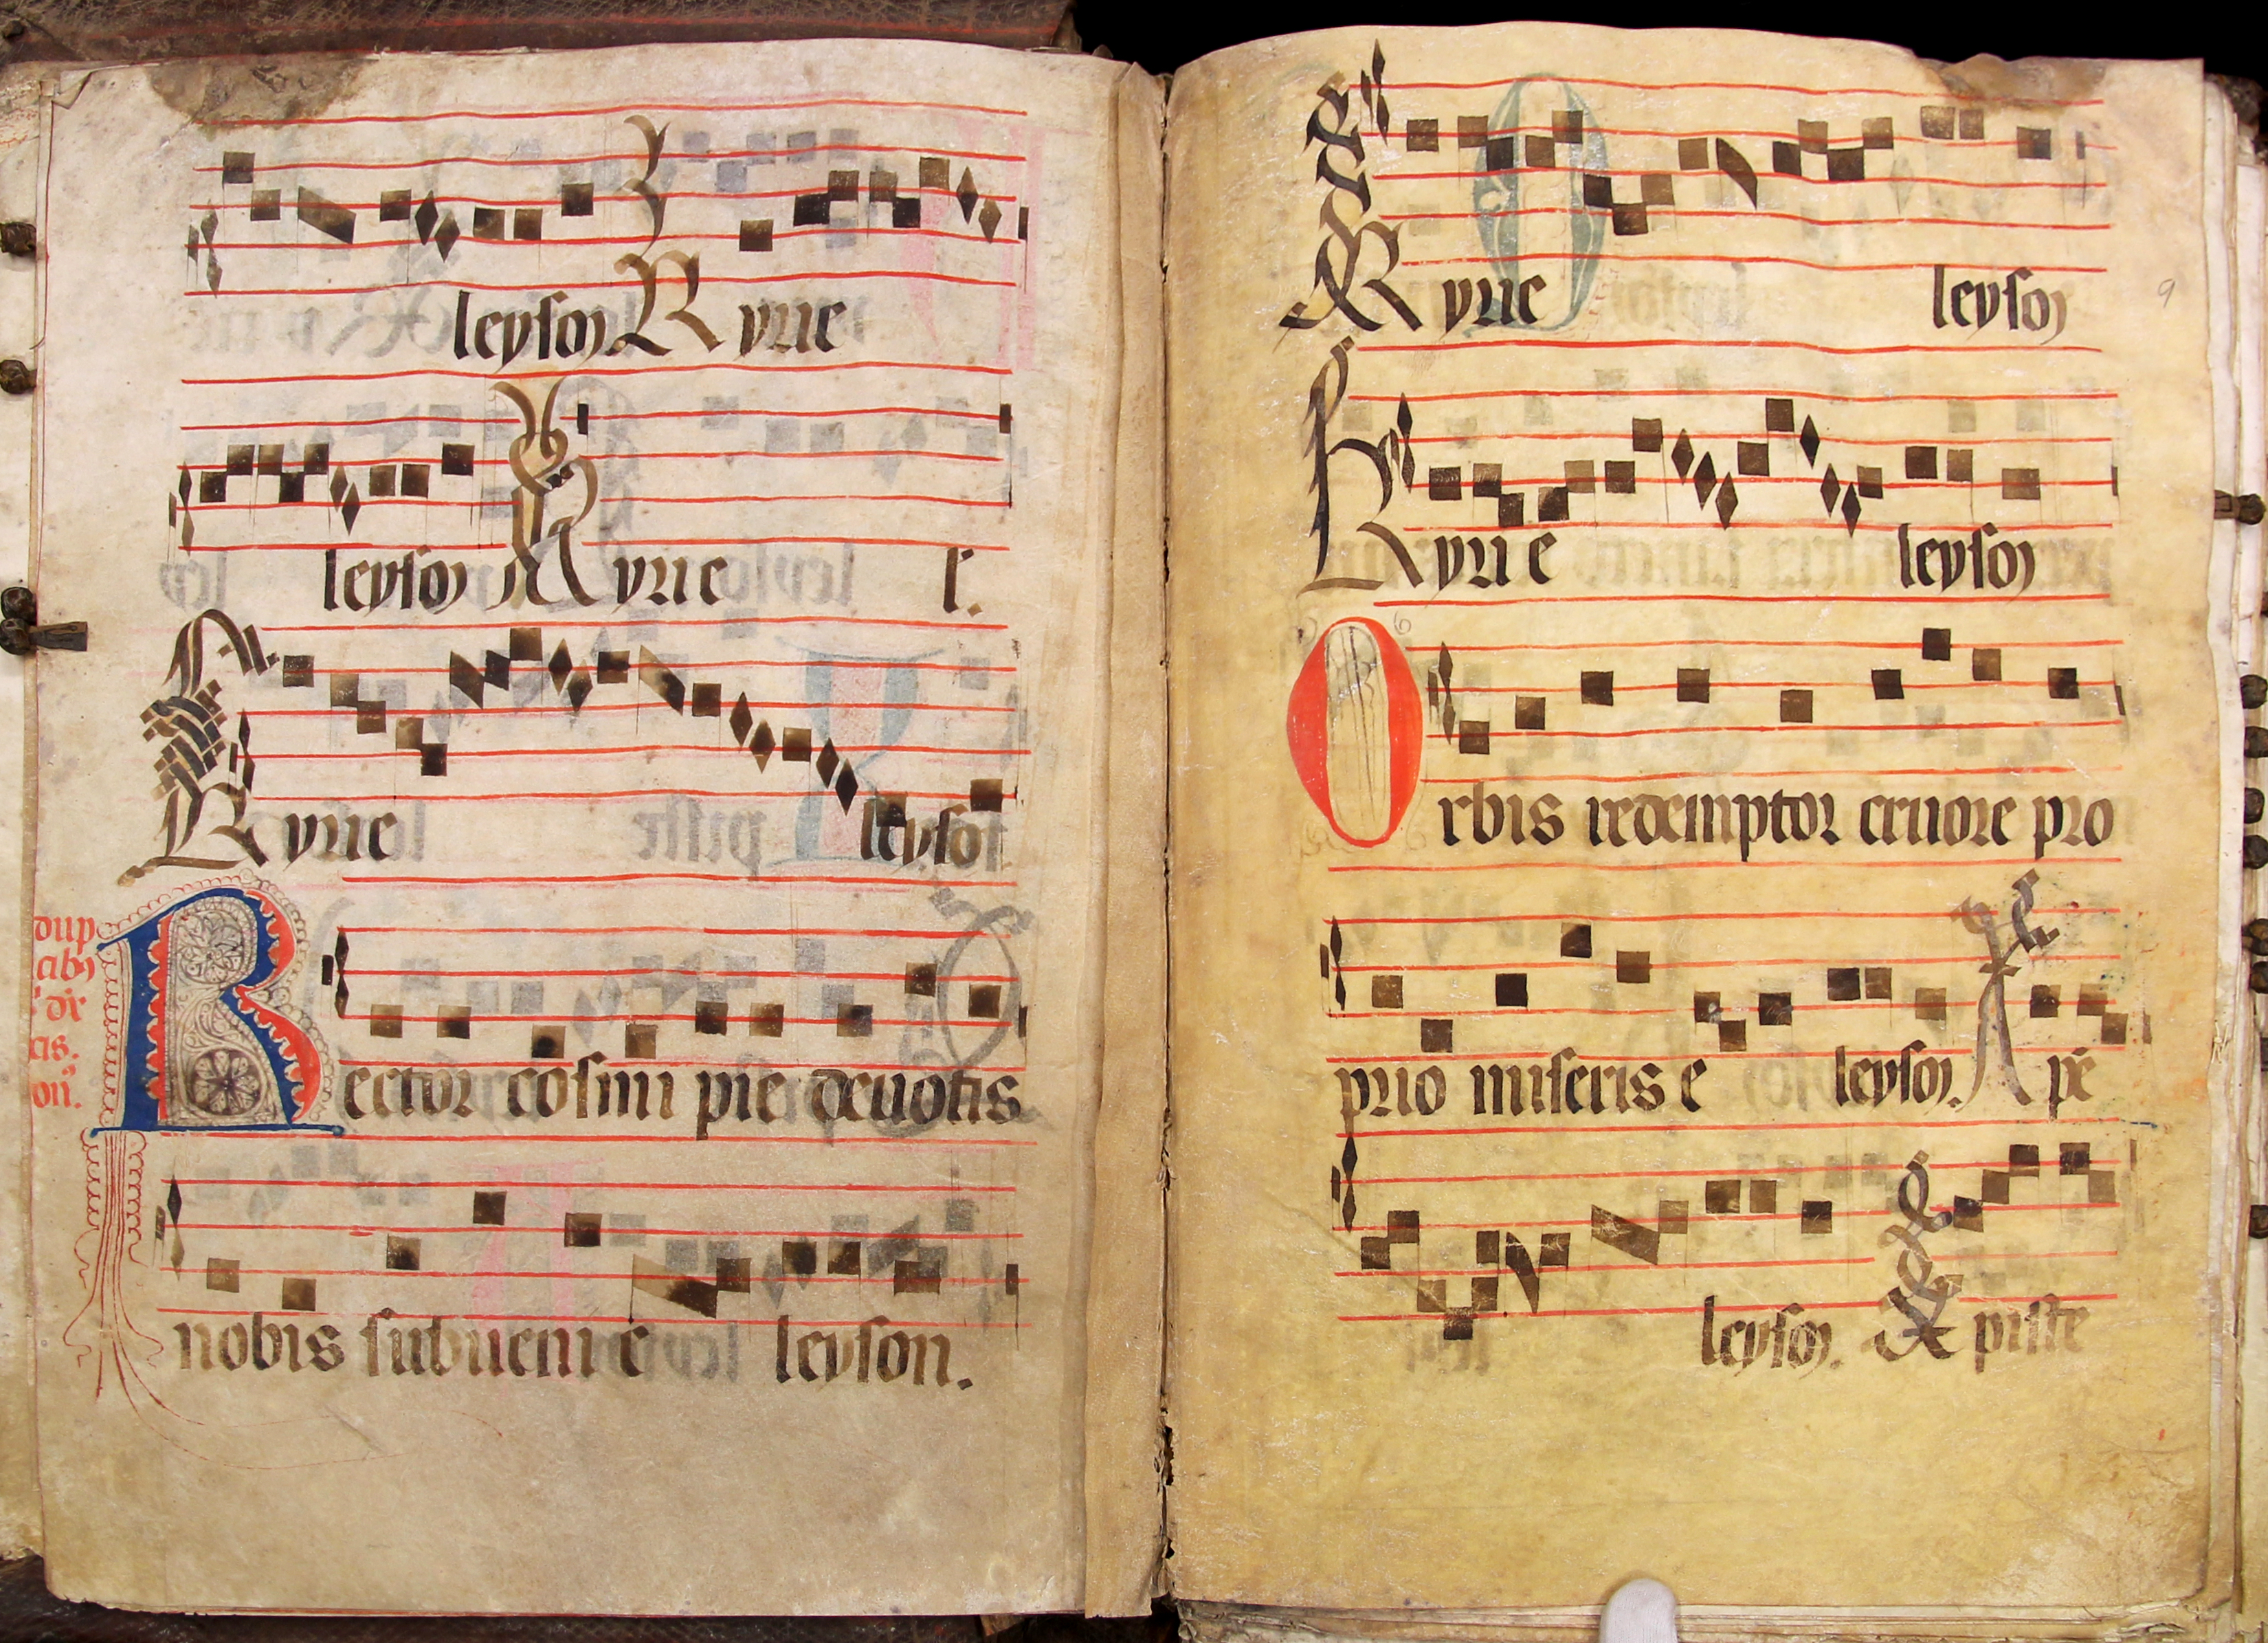 leyson Kyrie
leyson Kyrie l.
Kyrie leyson
dup
cibꝰ
cis.
on.
Rector cosmi pie deuotis
nobis subueni e leyson.
9
Kyrie leyson
Kyrie leyson
Orbis redemptor cruore pro
prio miseris e leyson. Xpe
leyson. Xpiste